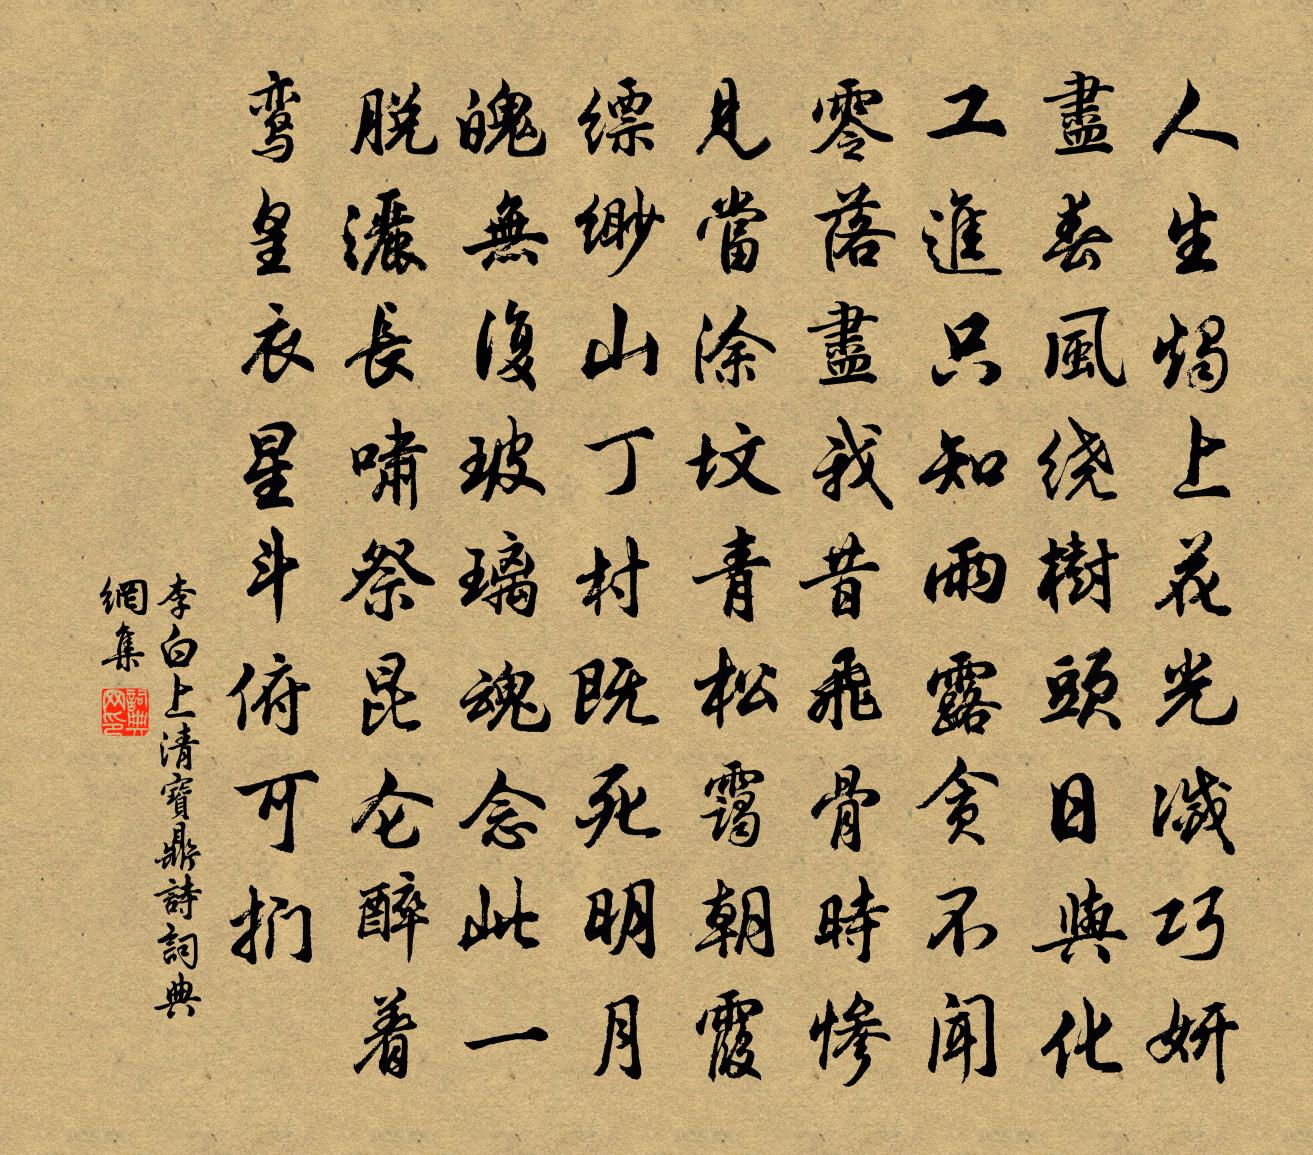 人生燭上花光滅巧妍
盡春風绕樹頭日與化
工進只知雨露贪不聞
零落盡我昔飛骨時慘
見當涂坟青松靄朝霞
缥缈山丁村既死明月
魄無復玻璃魂念此一
脱灑長嘯祭昆仑醉着
鸾皇衣星斗俯可捫
李白上清寶鼎詩詞典
網集